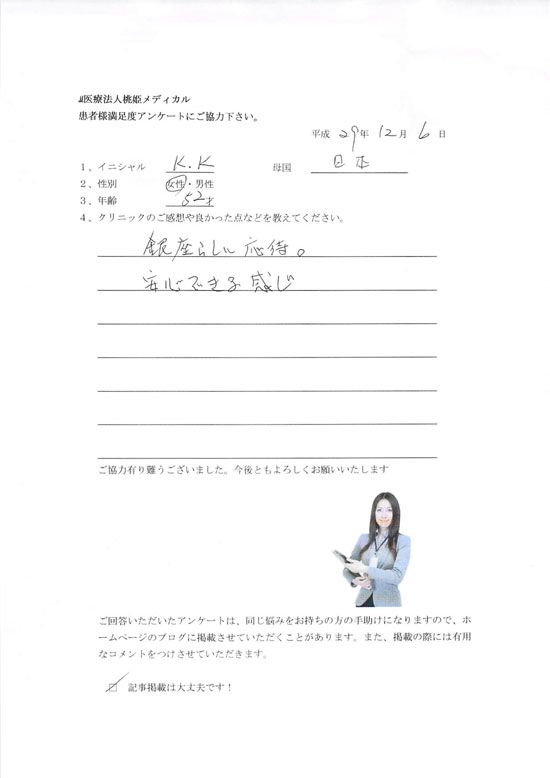 医療法人桃姫メディカル
患者様満足度アンケートにご協力下さい。
平成 29年 12月 6日
1、イニシャル K.K 母国 日本
2、性別 女性・男性
3、年齢 52才
4、クリニックのご感想や良かった点などを教えてください。
銀座らしい応待。
安心できる感じ
ご協力有り難うございました。今後ともよろしくお願いいたします
ご回答いただいたアンケートは、同じ悩みをお持ちの方の手助けになりますので、ホ
ームページのブログに掲載させていただくことがあります。また、掲載の際には有用
なコメントをつけさせていただきます。
☑ 記事掲載は大丈夫です！